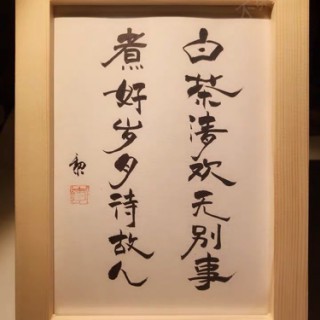 白茶清欢无别事
煮好岁月待故人